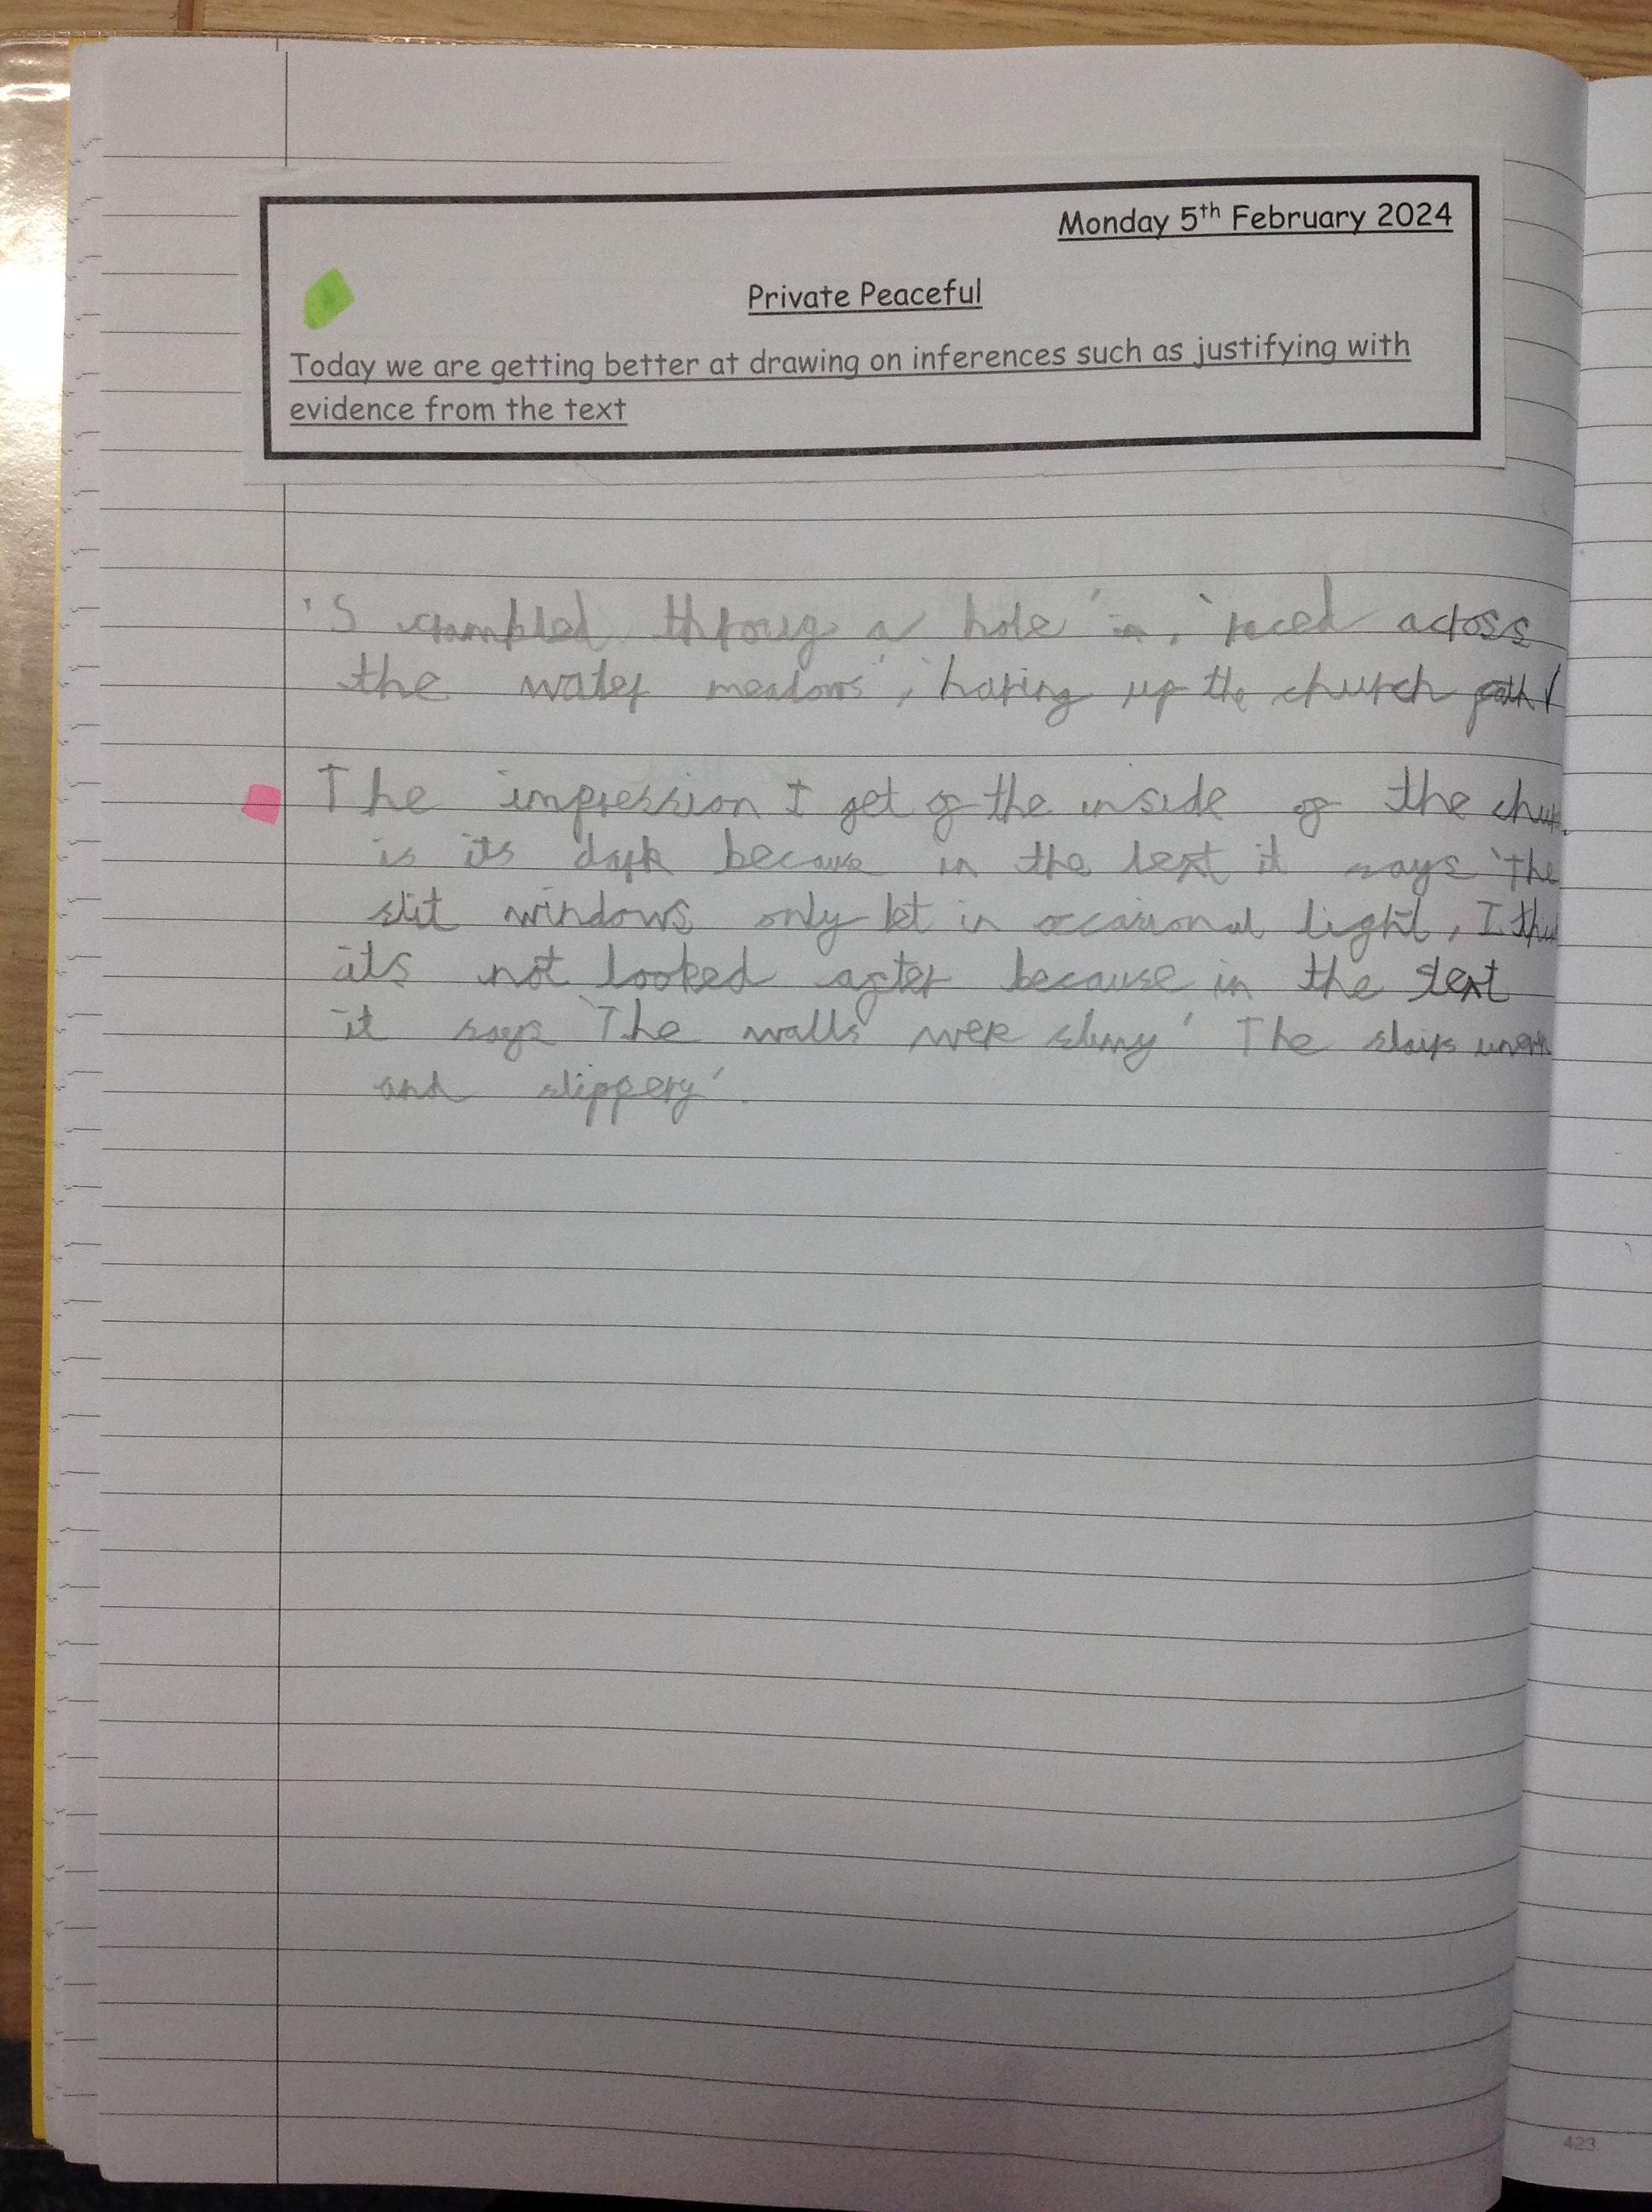 Monday 5th February 2024
Private Peaceful
Today we are getting better at drawing on inferences such as justifying with
evidence from the text
'Scrambled throug a hole' in, 'raced across
the water meadows', 'haring up the church path
The impression I get of the inside of the
is its dark because in the text it says 'The
slit windows only let in occasional light, I
its not looked after because in the text
it says 'The walls were slimy' The stairs uneven
and slippery'.
423